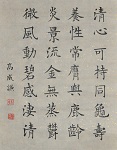 清心可持同龜壽
養性常賡與鹿齡
炎景流金無蒸鬱
微風動碧感凄清